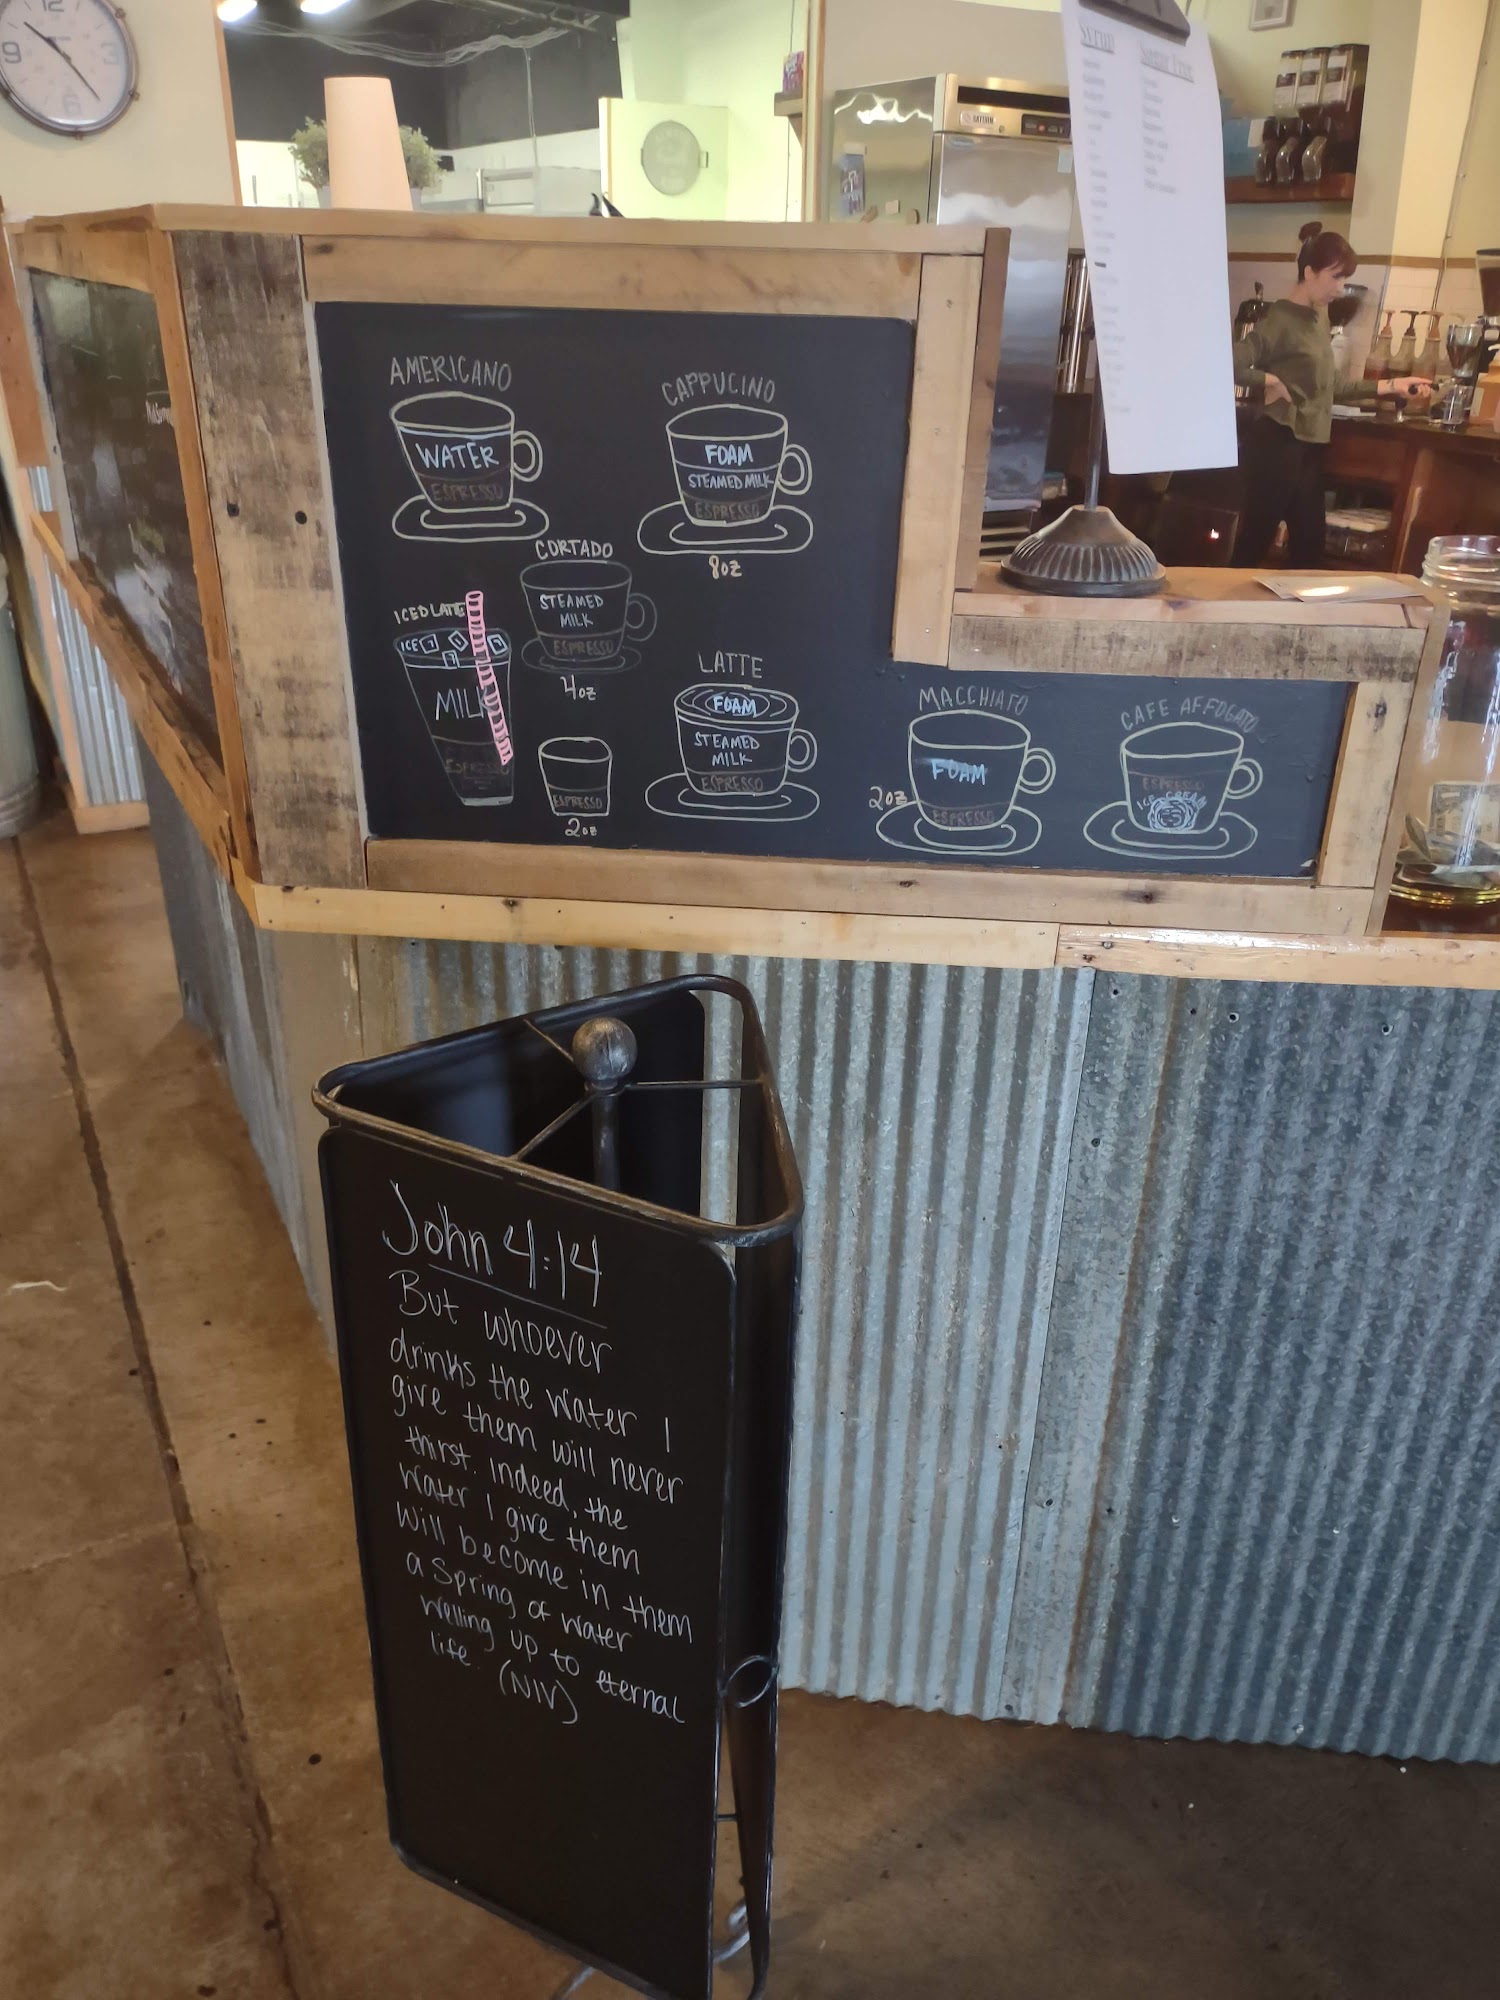 12
9
3
6
Syrup
Sugar Free
AMERICANO
WATER
ESPRESSO
CAPPUCINO
FOAM
STEAMED MILK
ESPRESSO
8oz
CORTADO
STEAMED
MILK
ESPRESSO
4oz
ICED LATE
ICE
MILK
ESPRESSO
ESPRESSO
2oz
LATTE
FOAM
STEAMED
MILK
ESPRESSO
MACCHIATO
FOAM
ESPRESSO
2oz
CAFE AFFOGATO
ESPRESSO
ICE CREAM
John 4:14
But whoever
drinks the water I
give them will never
thirst. Indeed, the
water I give them
will become in them
a spring of water
welling up to eternal
life. (NIV)